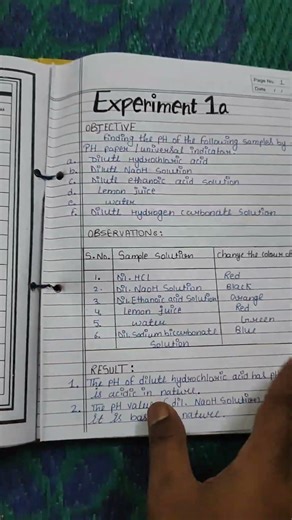 Page No: 1
Date
Experiment 1a
OBJECTIVE
Finding the PH of the following samples by
PH paper / universal indicator
a. Dilute Hydrochloric acid
b. Dilute NaOH Solution
c. Dilute Ethanoic acid solution
d. Lemon juice
e. water
f. Dilute Hydrogen Carbonate solution
OBSERVATIONS:
S.No. Sample solution change the colour of
1. Dil. HCl Red
2. Dil. NaOH Solution Black
3. Dil. Ethanoic acid Solution Orange
4. Lemon juice Red
5. water Green
6. Dil. Sodium bicarbonate Blue
Solution
RESULT:
1. The pH of dilute hydrochloric acid has
is acidic in nature.
2. The pH value dil. NaOH Solution
it is nature.